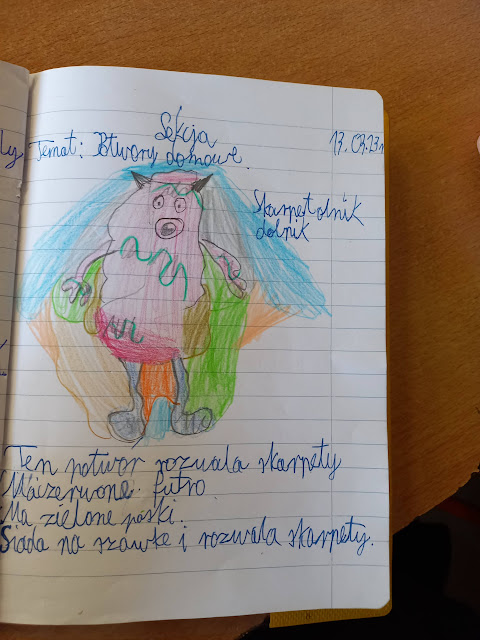 Sekcja
Temat: Potwory domowe. 13.09.23r
Skarpetolnik
dolnik
Ten potwór rozwala skarpety
Ma czerwone futro
Ma zielone paski.
Siada na szawke i rozwala skarpety.